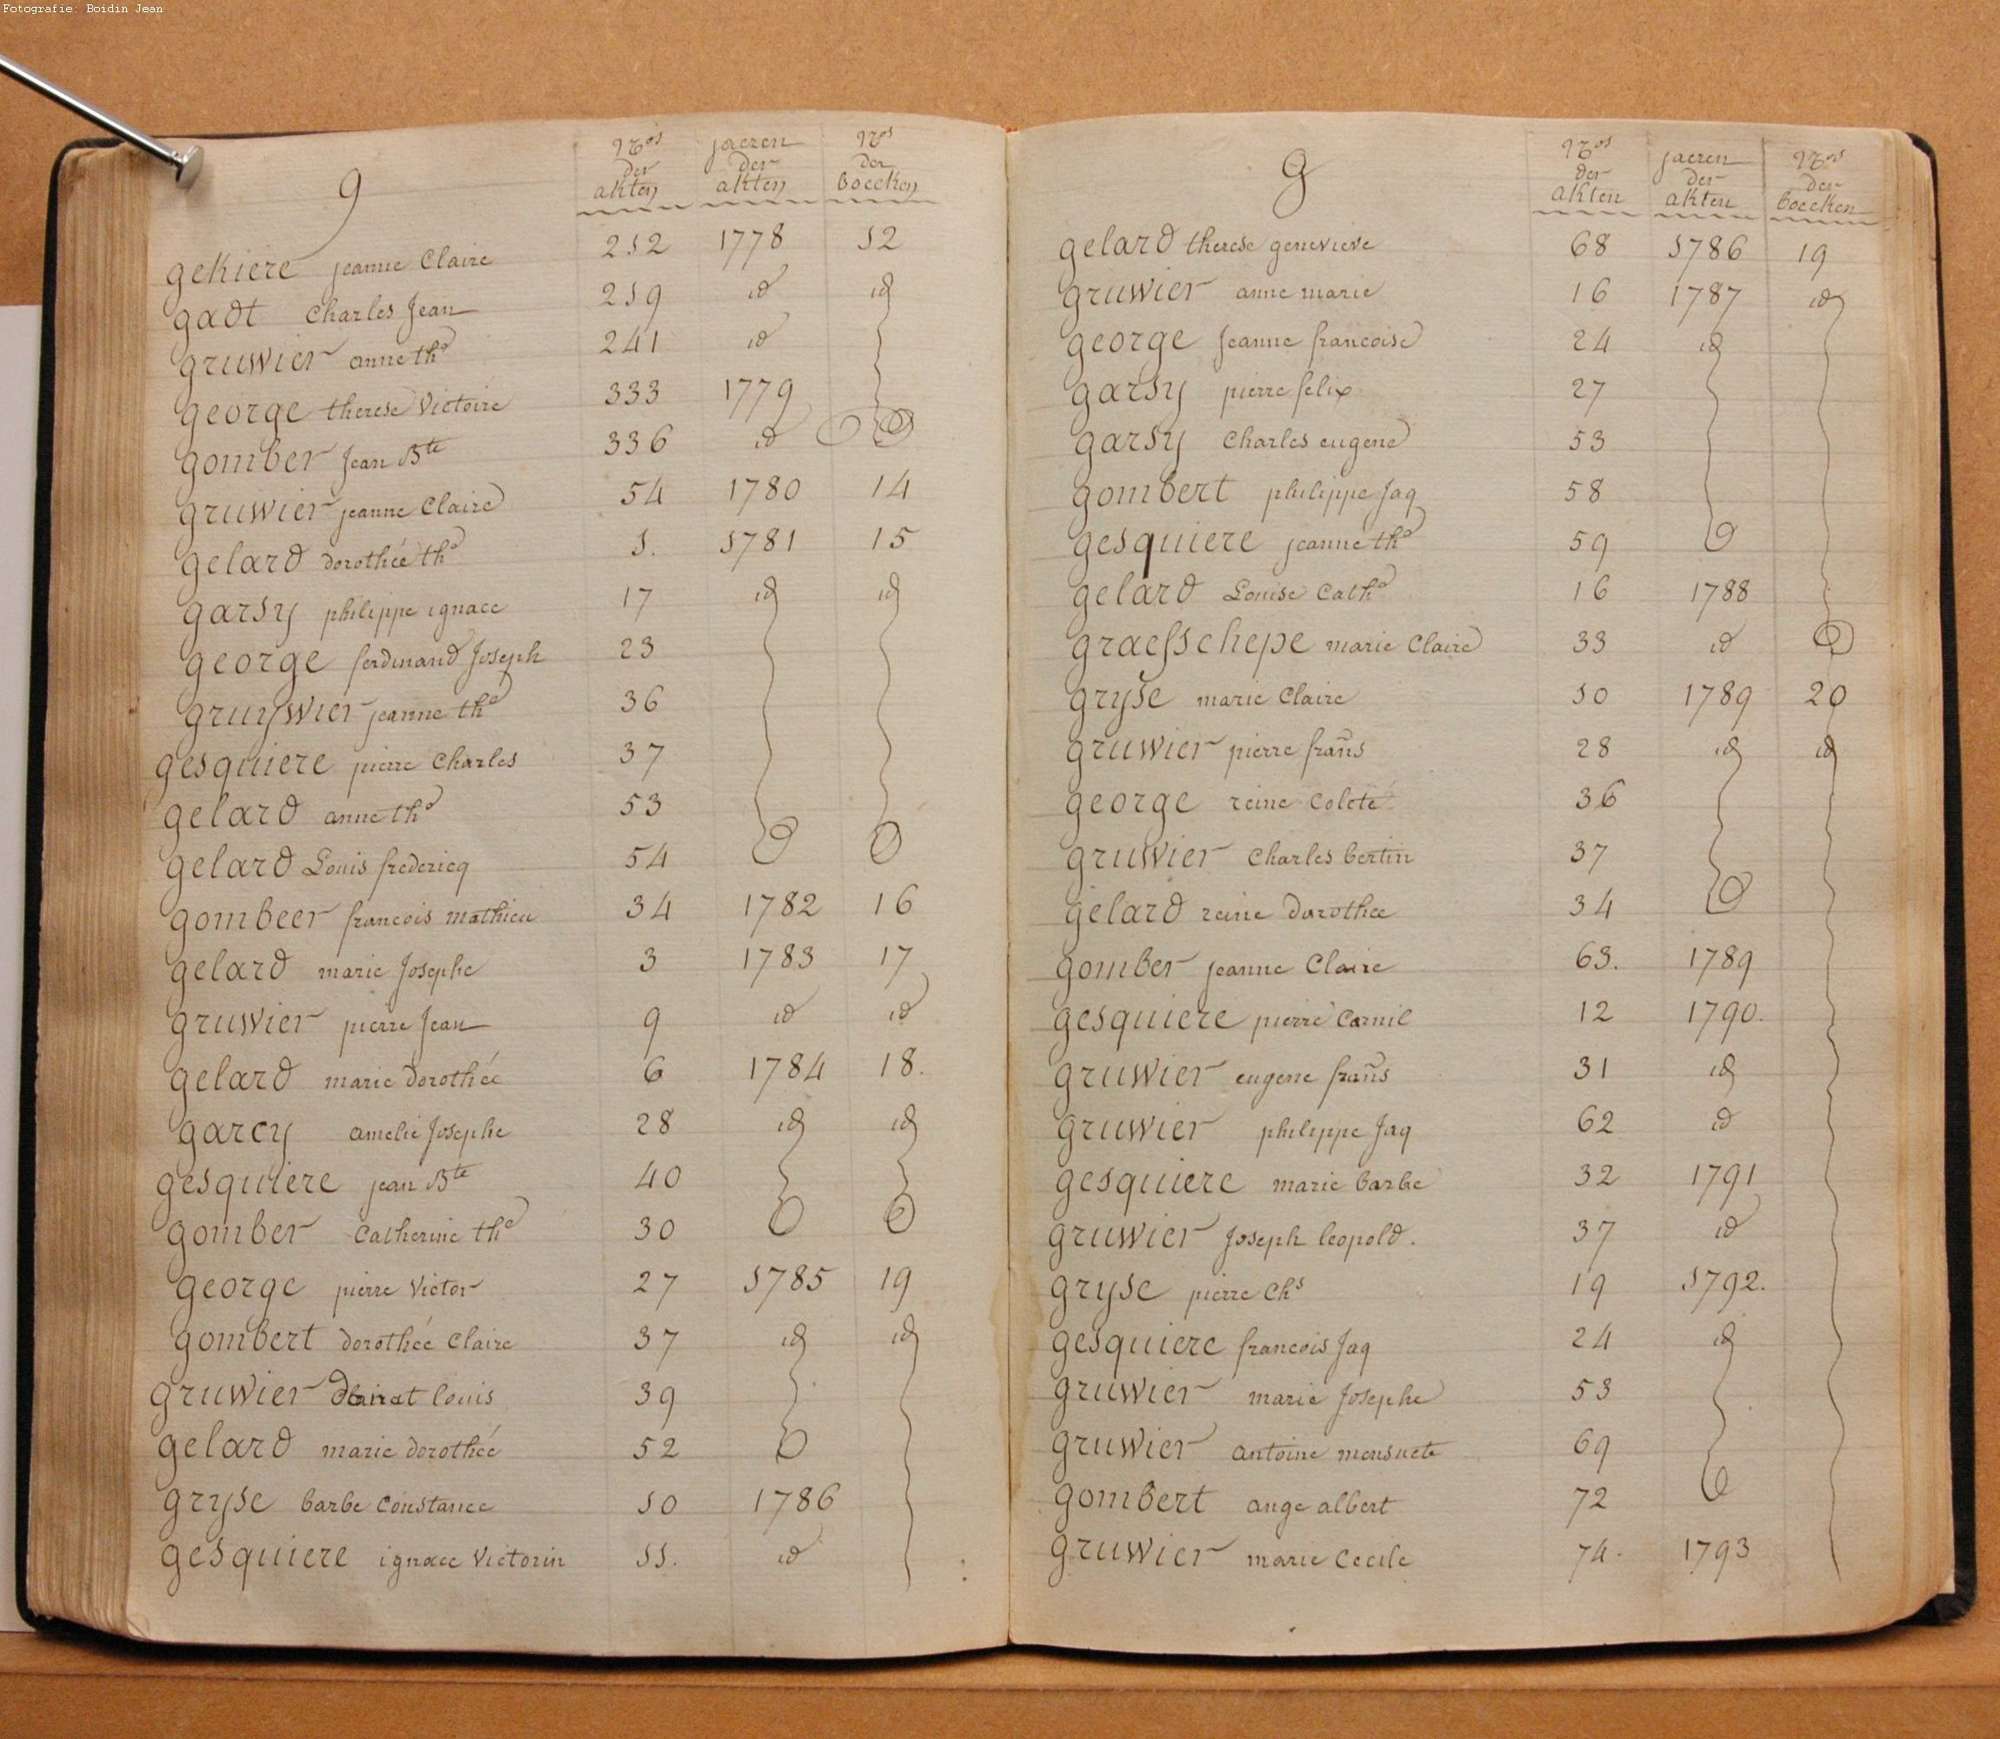 Fotografie: Boidin Jean
g
Nros der akten
jaeren der akten
Nros der boecken
gekiere jeanne Claire 212 1778 12
gadt Charles Jean 219 id id
gruwier anne the 241 id
george therese Victoire 333 1779
gomber Jean Bte 336 id
gruwier jeanne Claire 54 1780 14
gelard dorothée the 1. 1781 15
garsy philippe ignace 17 id id
george ferdinand Joseph 23
gruywier jeanne the 36
gesquiere pierre Charles 37
gelard anne the 53
gelard Louis fredericq 54
gombeer francois mathieu 34 1782 16
gelard marie Josephe 3 1783 17
gruwier pierre Jean 9 id id
gelard marie dorothée 6 1784 18.
garcy amelie Josephe 28 id id
gesquiere jean Bte 40
gomber Catherine the 30
george pierre Victor 27 1785 19
gombert dorothée Claire 37 id id
gruwier louis 39
gelard marie dorothée 52
gryse barbe Constance 10 1786
gesquiere ignace Victorin 11. id
g
Nros der akten
jaeren der akten
Nros der boecken
gelard therese genevieve 68 1786 19
gruwier anne marie 16 1787 id
george Jeanne francoise 24 id
garsy pierre felix 27
garsy Charles eugene 53
gombert philippe Jaq 58
gesquiere jeanne the 59
gelard Louise Cathe 16 1788
graesschepe marie Claire 33 id
gryse marie Claire 10 1789 20
gruwier pierre frans 28 id id
george reine Coleté 36
gruwier Charles bertin 37
gelard reine dorothee 34
gomber jeanne Claire 63. 1789
gesquiere pierre Cornil 12 1790.
gruwier eugene frans 31 id
gruwier philippe Jaq 62 id
gesquiere marie barbe 32 1791
gruwier Joseph leopold. 37 id
gryse pierre Chs 19 1792.
gesquiere francois Jaq 24 id
gruwier marie Josephe 53
gruwier antoine mensuete 69
gombert ange albert 72
gruwier marie Cecile 74. 1793